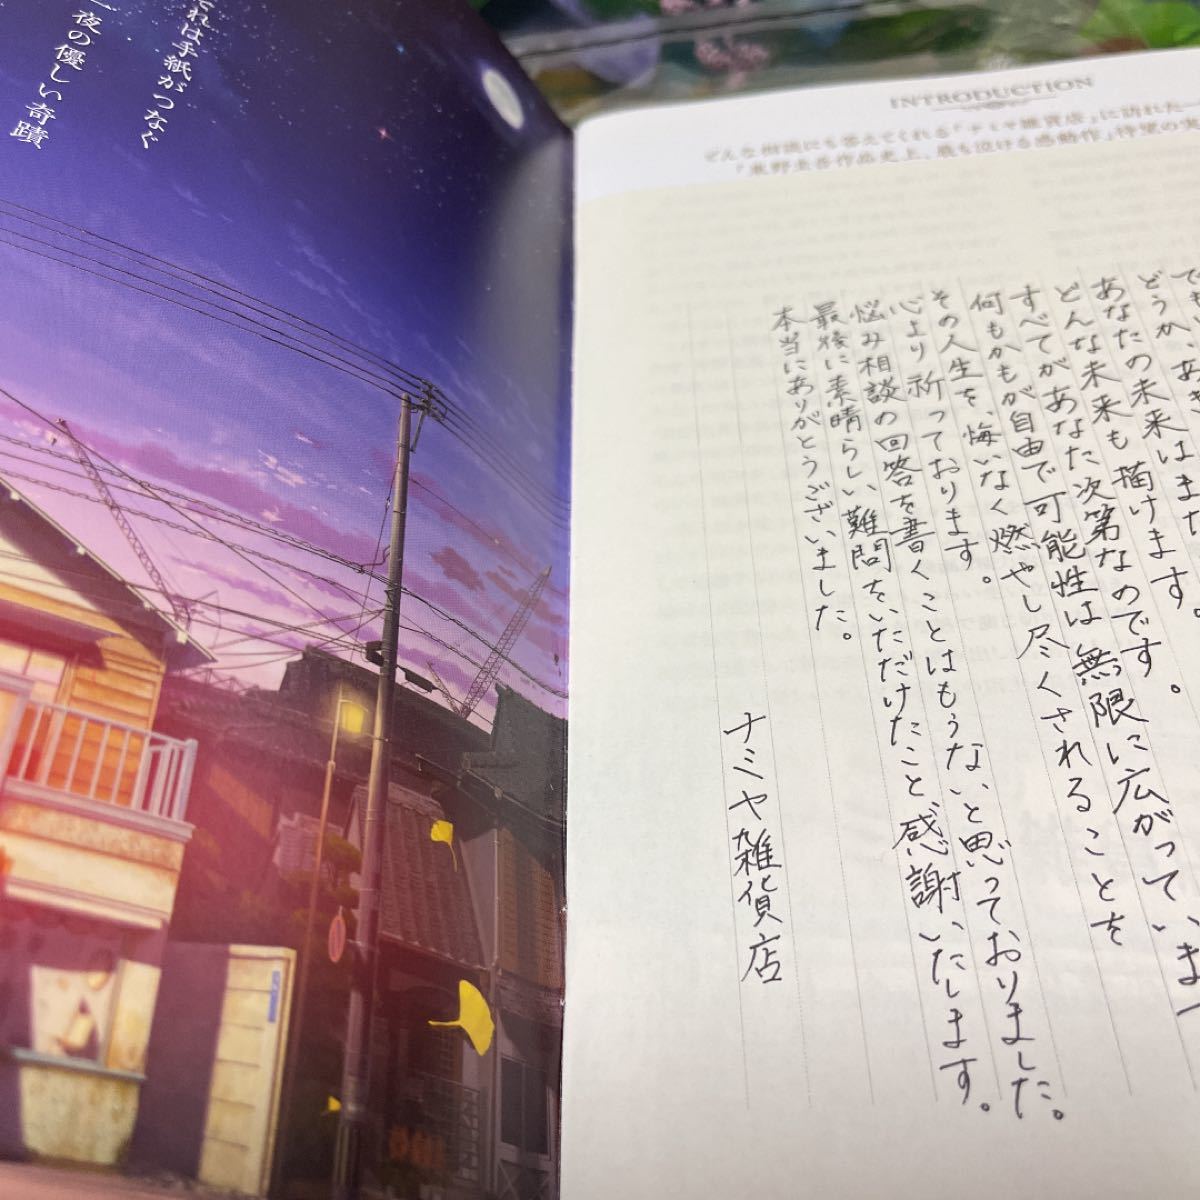 それは手紙がつなぐ
一夜の優しい奇蹟
INTRODUCTION
どんな相談にも答えてくれる「ナミヤ雑貨店」に訪れた一
「東野圭吾作品史上、最も泣ける感動作」待望の
でも、
どうか、あき
あなたの未来はまだ
どんな未来も描けます。
すべてがあなた次第なのです。
何もかもが自由で可能性は無限に広がっていま
その人生を、悔いなく燃やし尽くされることを
心より祈っております。
悩み相談の回答を書くことはもうないと思っておりました。
最後に素晴らしい難問をいただけたこと感謝いたします。
本当にありがとうございました。
ナミヤ雑貨店